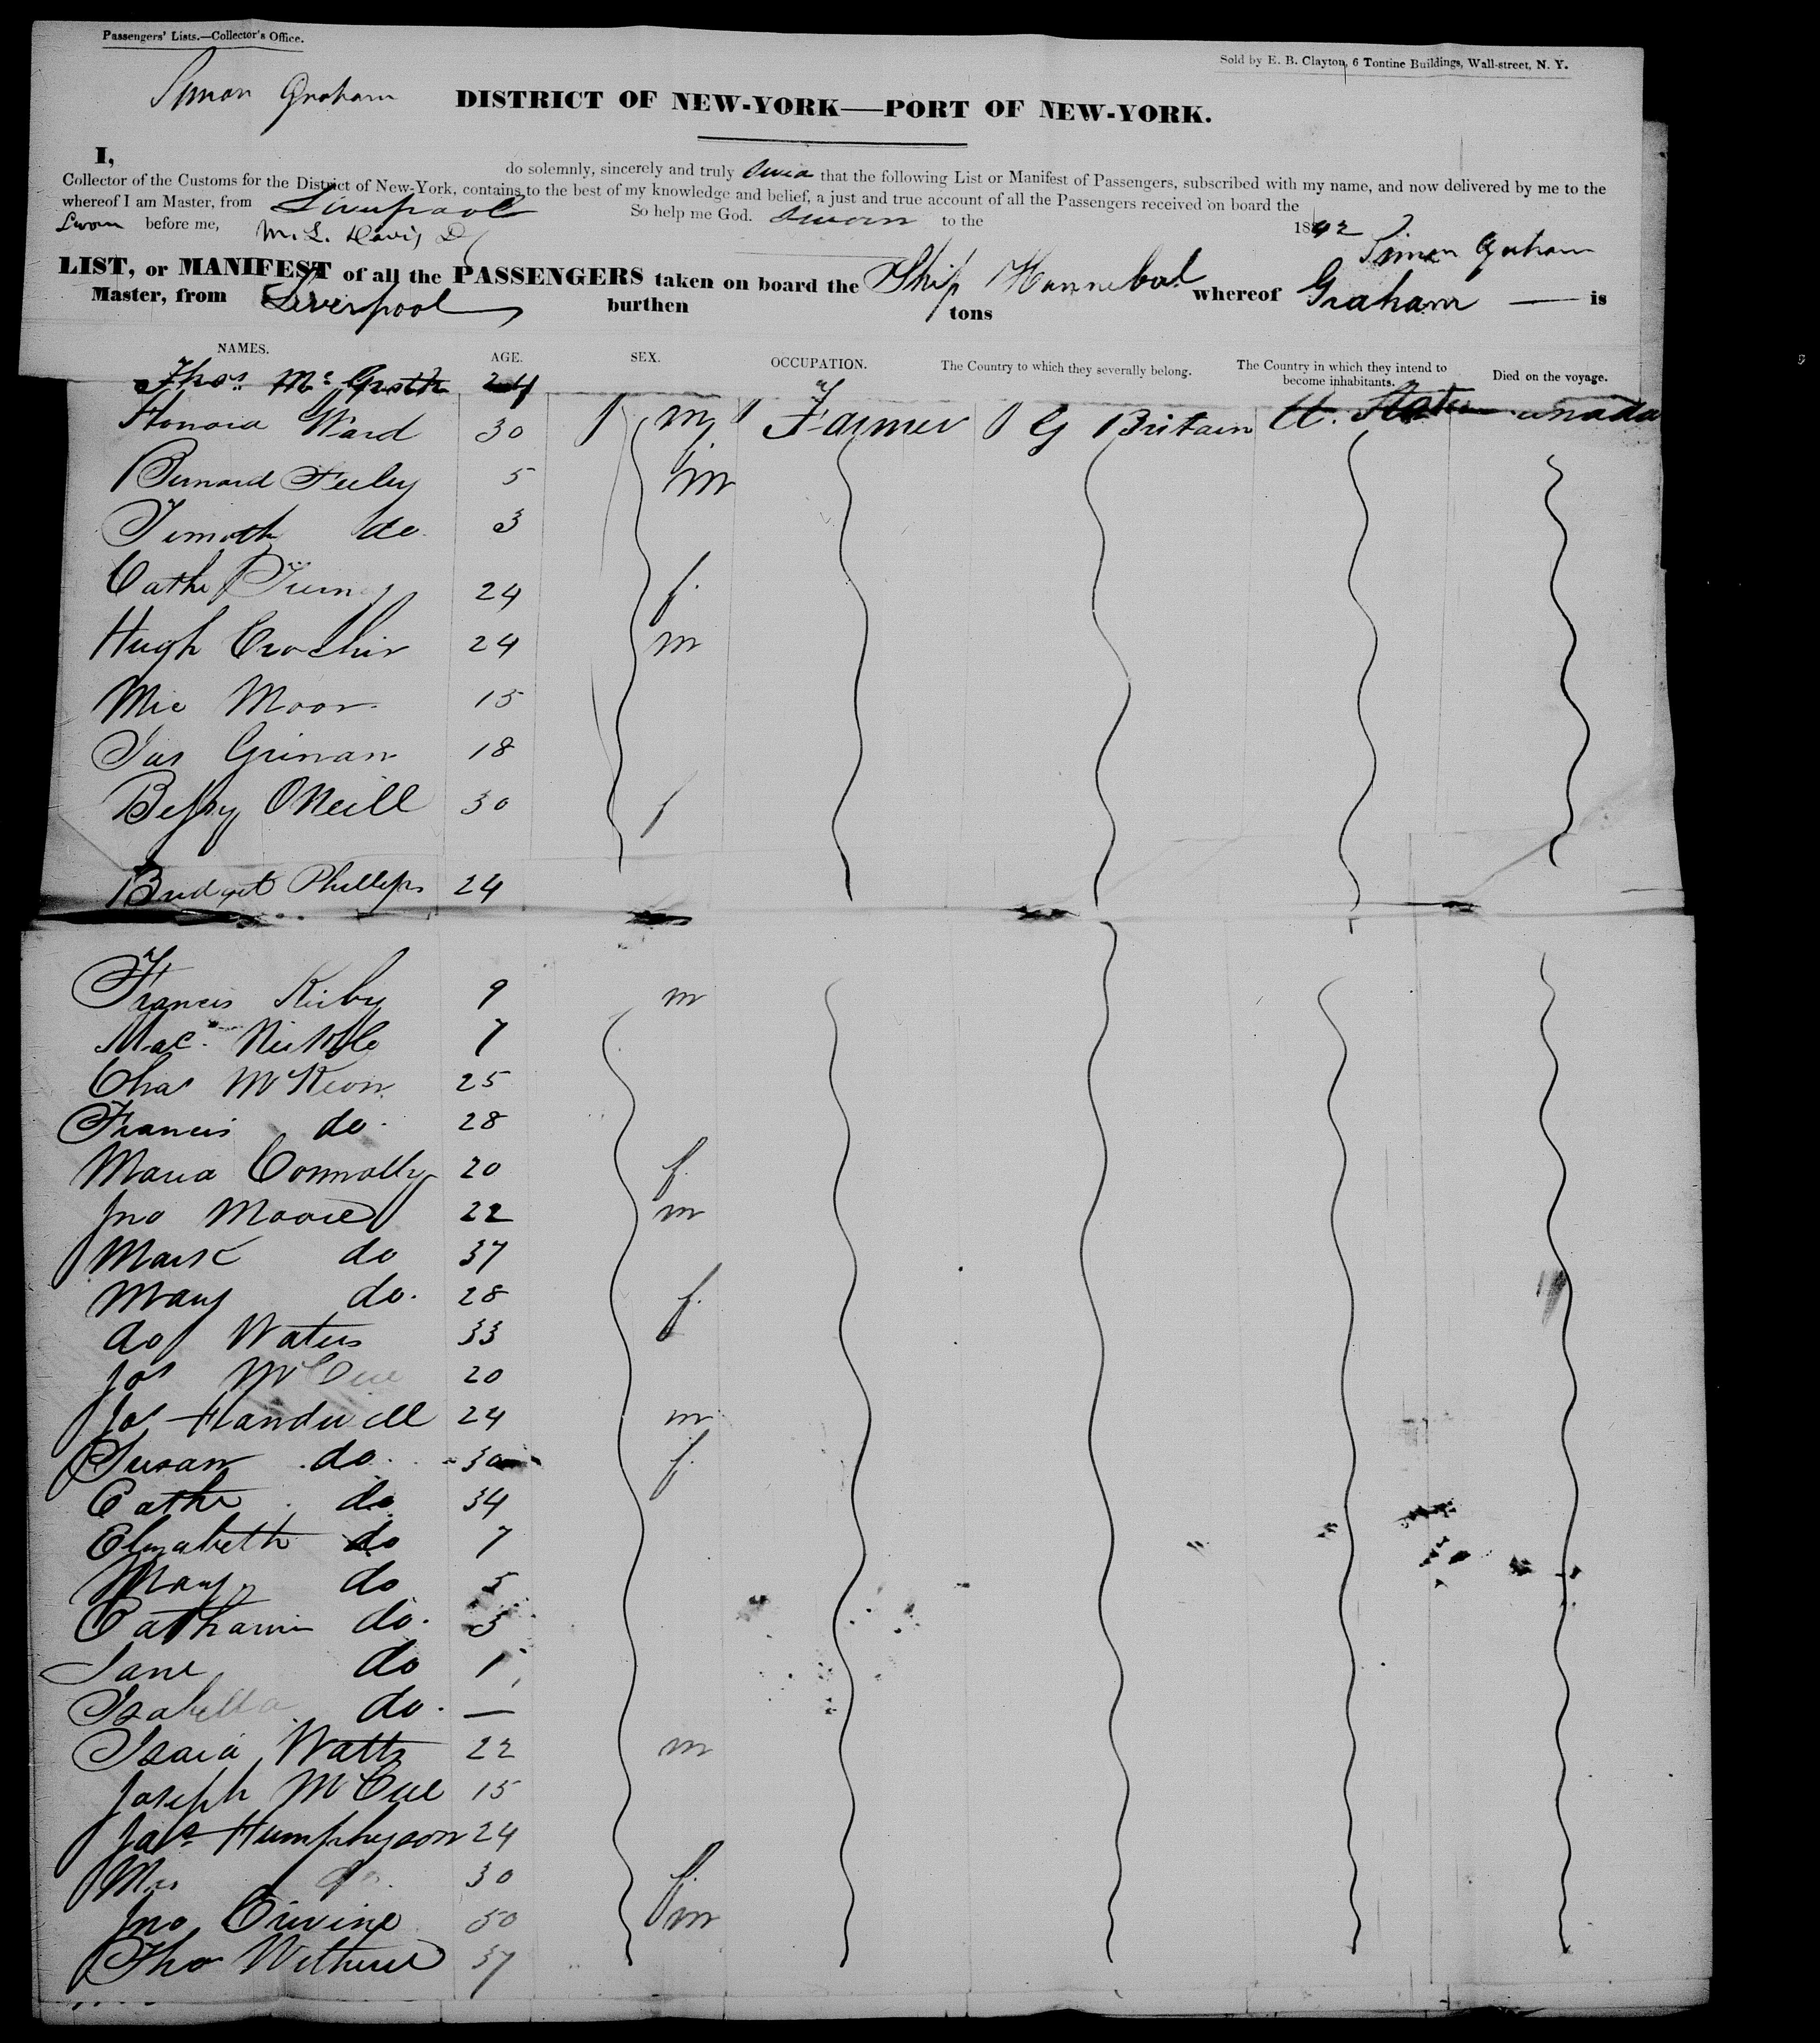 Passengers' Lists.—Collector's Office.
Sold by E. B. Clayton, 6 Tontine Buildings, Wall-street, N. Y.
Simon Graham
DISTRICT OF NEW-YORK—PORT OF NEW-YORK.
I, do solemnly, sincerely and truly that the following List or Manifest of Passengers, subscribed with my name, and now delivered by me to the
Collector of the Customs for the District of New-York, contains to the best of my knowledge and belief, a just and true account of all the Passengers received on board the
whereof I am Master, from Liverpool So help me God.
Sworn to the 1842
Sworn before me, M. L. Davis Simon Graham
LIST, or MANIFEST of all the PASSENGERS taken on board the Ship Hannebal whereof Graham — is
Master, from Liverpool burthen tons
NAMES. AGE. SEX. OCCUPATION. The Country to which they severally belong. The Country in which they intend to become inhabitants. Died on the voyage.
Thos. Mc Grath 24
Honora Ward 30 m Farmer G Britain U. States
Bernard Feeley 5 m
Timoth do 3
Cathe 24 f.
Hugh 24 m
Mic Moor 15
Jas Grinan 18
Bessy ONeill 30 f
Bridget Phillips 24
Francis Kirby 9 m
7
Chas McKeon 25
Francis do. 28
Maria Connolly 20 f.
Jno Moore 22 m
Mark do 37
Mary do. 28 f.
do Waters 33
Jos McCue 20
Jos 24 m
Susan do. 30 f.
Cathe do. 34
Elizabeth do 7
Mary do 5
Catharin do. 3
Jane do 1
Isabella do. —
Isaia Watts 22 m
Joseph McCue 15
Jas Humphyson 24
Mrs do. 30 f.
Jno 50 m
Tho 37